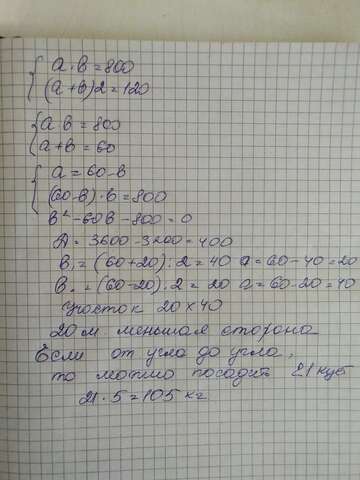 a · в = 800
(a + в) 2 = 120
a · в = 800
a + в = 60
a = 60 - в
(60 - в) · в = 800
в² - 60в - 800 = 0
Д = 3600 - 3200 = 400
в₁ = (60 + 20) : 2 = 40 a = 60 - 40 = 20
в₂ = (60 - 20) : 2 = 20 a = 60 - 20 = 40
Участок 20 x 40
20 м меньшая сторона
Если от угла до угла,
то можно посадить 21 куст
21 · 5 = 105 кг